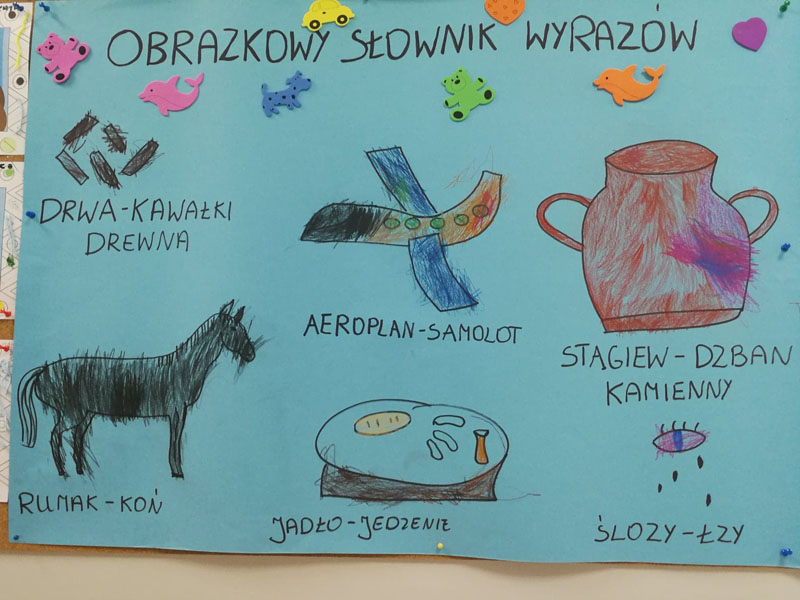 OBRAZKOWY SŁOWNIK WYRAZÓW
DRWA-KAWAŁKI
DREWNA
AEROPLAN-SAMOLOT
STĄGIEW-DZBAN
KAMIENNY
RUMAK-KOŃ
JADŁO-JEDZENIE
ŚLOZY-ŁZY